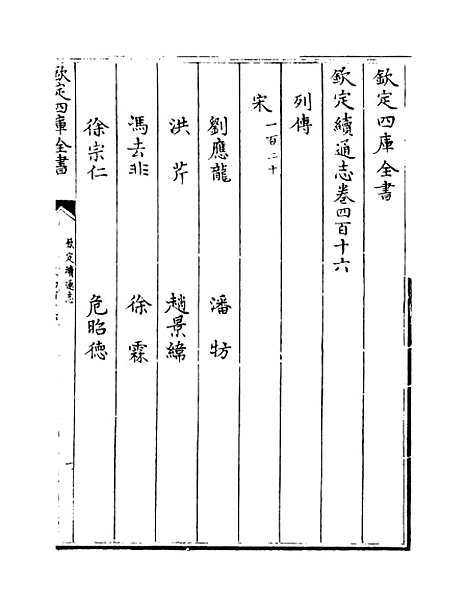 欽定四庫全書
欽定續通志卷四百十六
列傳
宋 一百二十
劉應龍 潘牥
洪芹 趙景緯
馮去非 徐霖
徐宗仁 危昭德
欽定四庫全書
欽定續通志